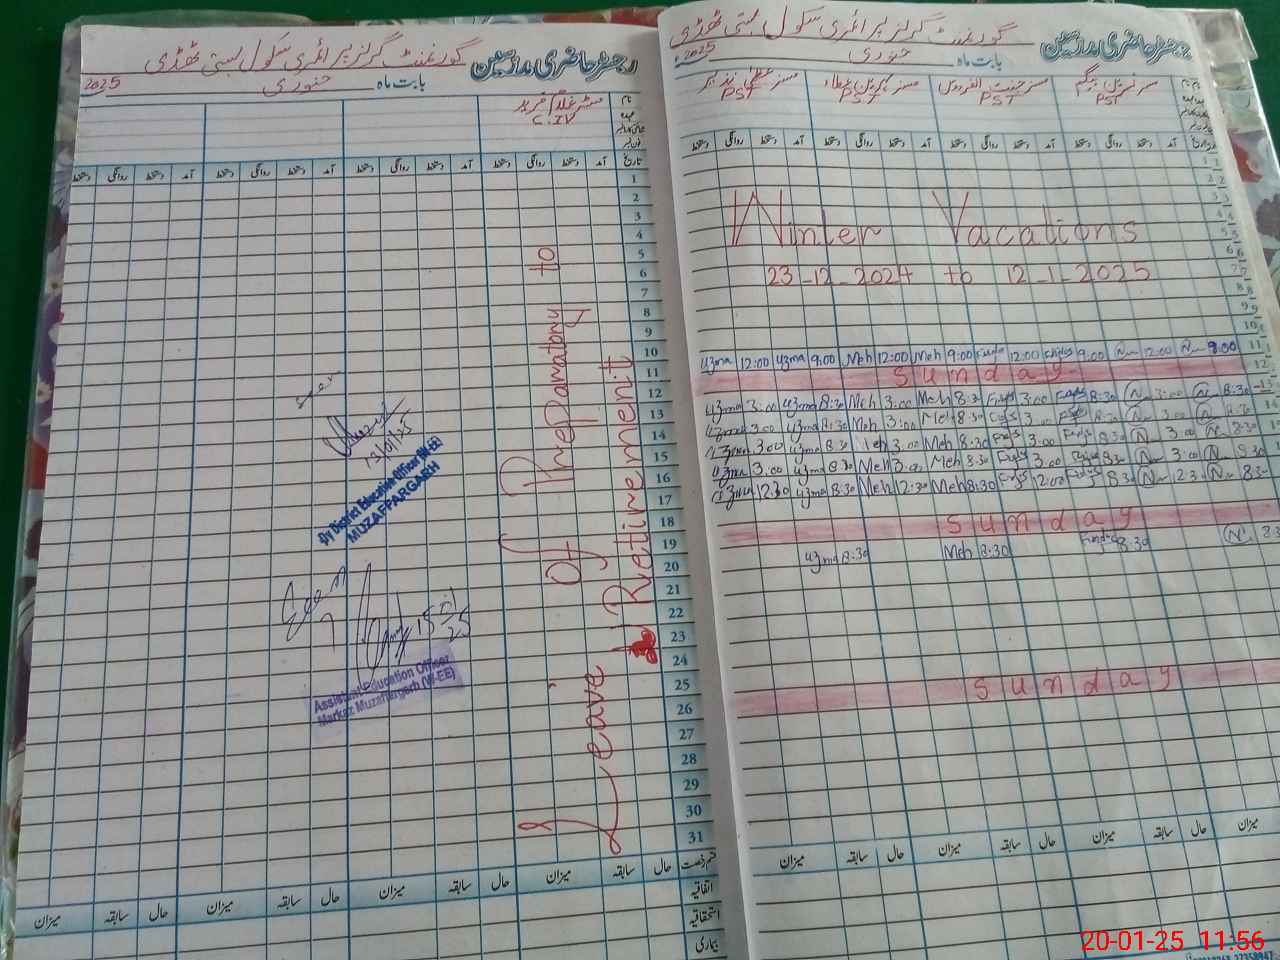 رجسٹر حاضری مدرسین گورنمنٹ گرلز پرائمری سکول بستی ٹھڈی
بابت ماہ جنوری 2025
نام
عہدہ
مسز نسرین بیگم
PST
PST
PST
PST
تاریخ آمد دستخط روانگی دستخط آمد دستخط روانگی دستخط آمد دستخط روانگی دستخط آمد دستخط روانگی دستخط
Winter Vacations
23-12-2024 to 12-1-2025
uzma 12:00 uzma 9:00 Meh 12:00 Meh 9:00 12:00 9:00 12:00 9:00
Sunday
uzma 3:00 uzma 8:30 Meh 3:00 Meh 8:30 3:00 8:30 N 3:00 N 8:30
uzma 3:00 uzma 8:30 Meh 3:00 Meh 8:30 3:00 8:30 N 3:00 N 8:30
uzma 3:00 uzma 8:30 Meh 3:00 Meh 8:30 3:00 8:30 N 3:00 N 8:30
uzma 3:00 uzma 8:30 Meh 3:00 Meh 8:30 3:00 8:30 N 3:00 N 8:30
uzma 12:30 uzma 8:30 Meh 12:30 Meh 8:30 12:00 8:30 N 12:3 N 8:3
Sunday
uzma 8:30 Meh 8:30 8:30 N 8:3
Sunday
میزان سابقہ حال میزان سابقہ حال میزان
رجسٹر حاضری مدرسین گورنمنٹ گرلز پرائمری سکول بستی ٹھڈی
بابت ماہ جنوری 2025
نام
عہدہ
مسٹر غلام فرید
C.IV
تاریخ آمد دستخط روانگی دستخط آمد دستخط روانگی دستخط آمد دستخط روانگی دستخط آمد دستخط روانگی دستخط
1
2
3
4
5
6
7
8
9
10
11
12
13
14
15
16
17
18
19
20
21
22
23
24
25
26
27
28
29
30
31
Leave Of Preparatory to
Retirement
13/01/25
Dy District Education Officer (W-EE)
MUZAFFARGARH
Seen
Assistant Education Officer
Markaz Muzaffargarh (W-EE)
قسم رخصت حال سابقہ میزان حال سابقہ میزان حال سابقہ میزان حال سابقہ میزان
اتفاقیہ
استحقاقیہ
بیماری
20-01-25 11:56